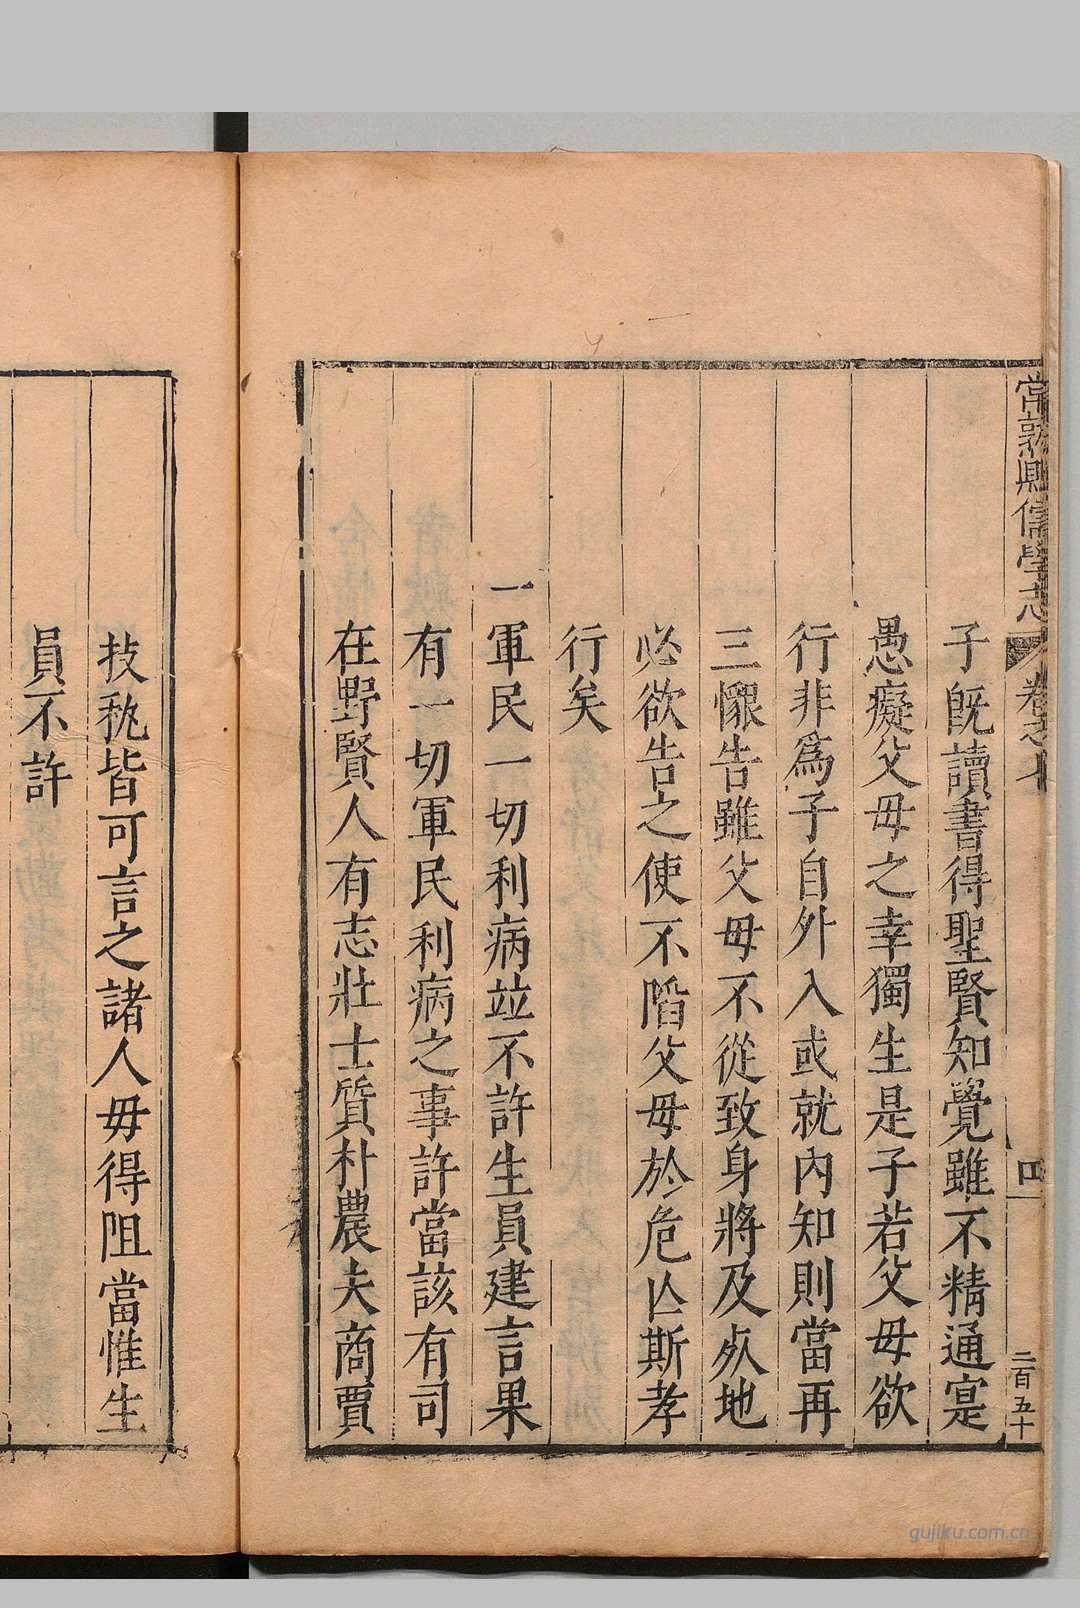 常熟縣儒學志
卷之七
四
二百五十
子既讀書得聖賢知覺雖不精通寔
愚癡父母之幸獨生是子若父母欲
行非為子自外入或就內知則當再
三懷告雖父毋不從致身將及死地
必欲告之使不陷父毋於危亾斯孝
行矣
一軍民一切利病竝不許生員建言果
有一切軍民利病之事許當該有司
在野賢人有志壯士質朴農夫商賈
技藝皆可言之諸人毋得阻當惟生
員不許
gujiku.com.cn